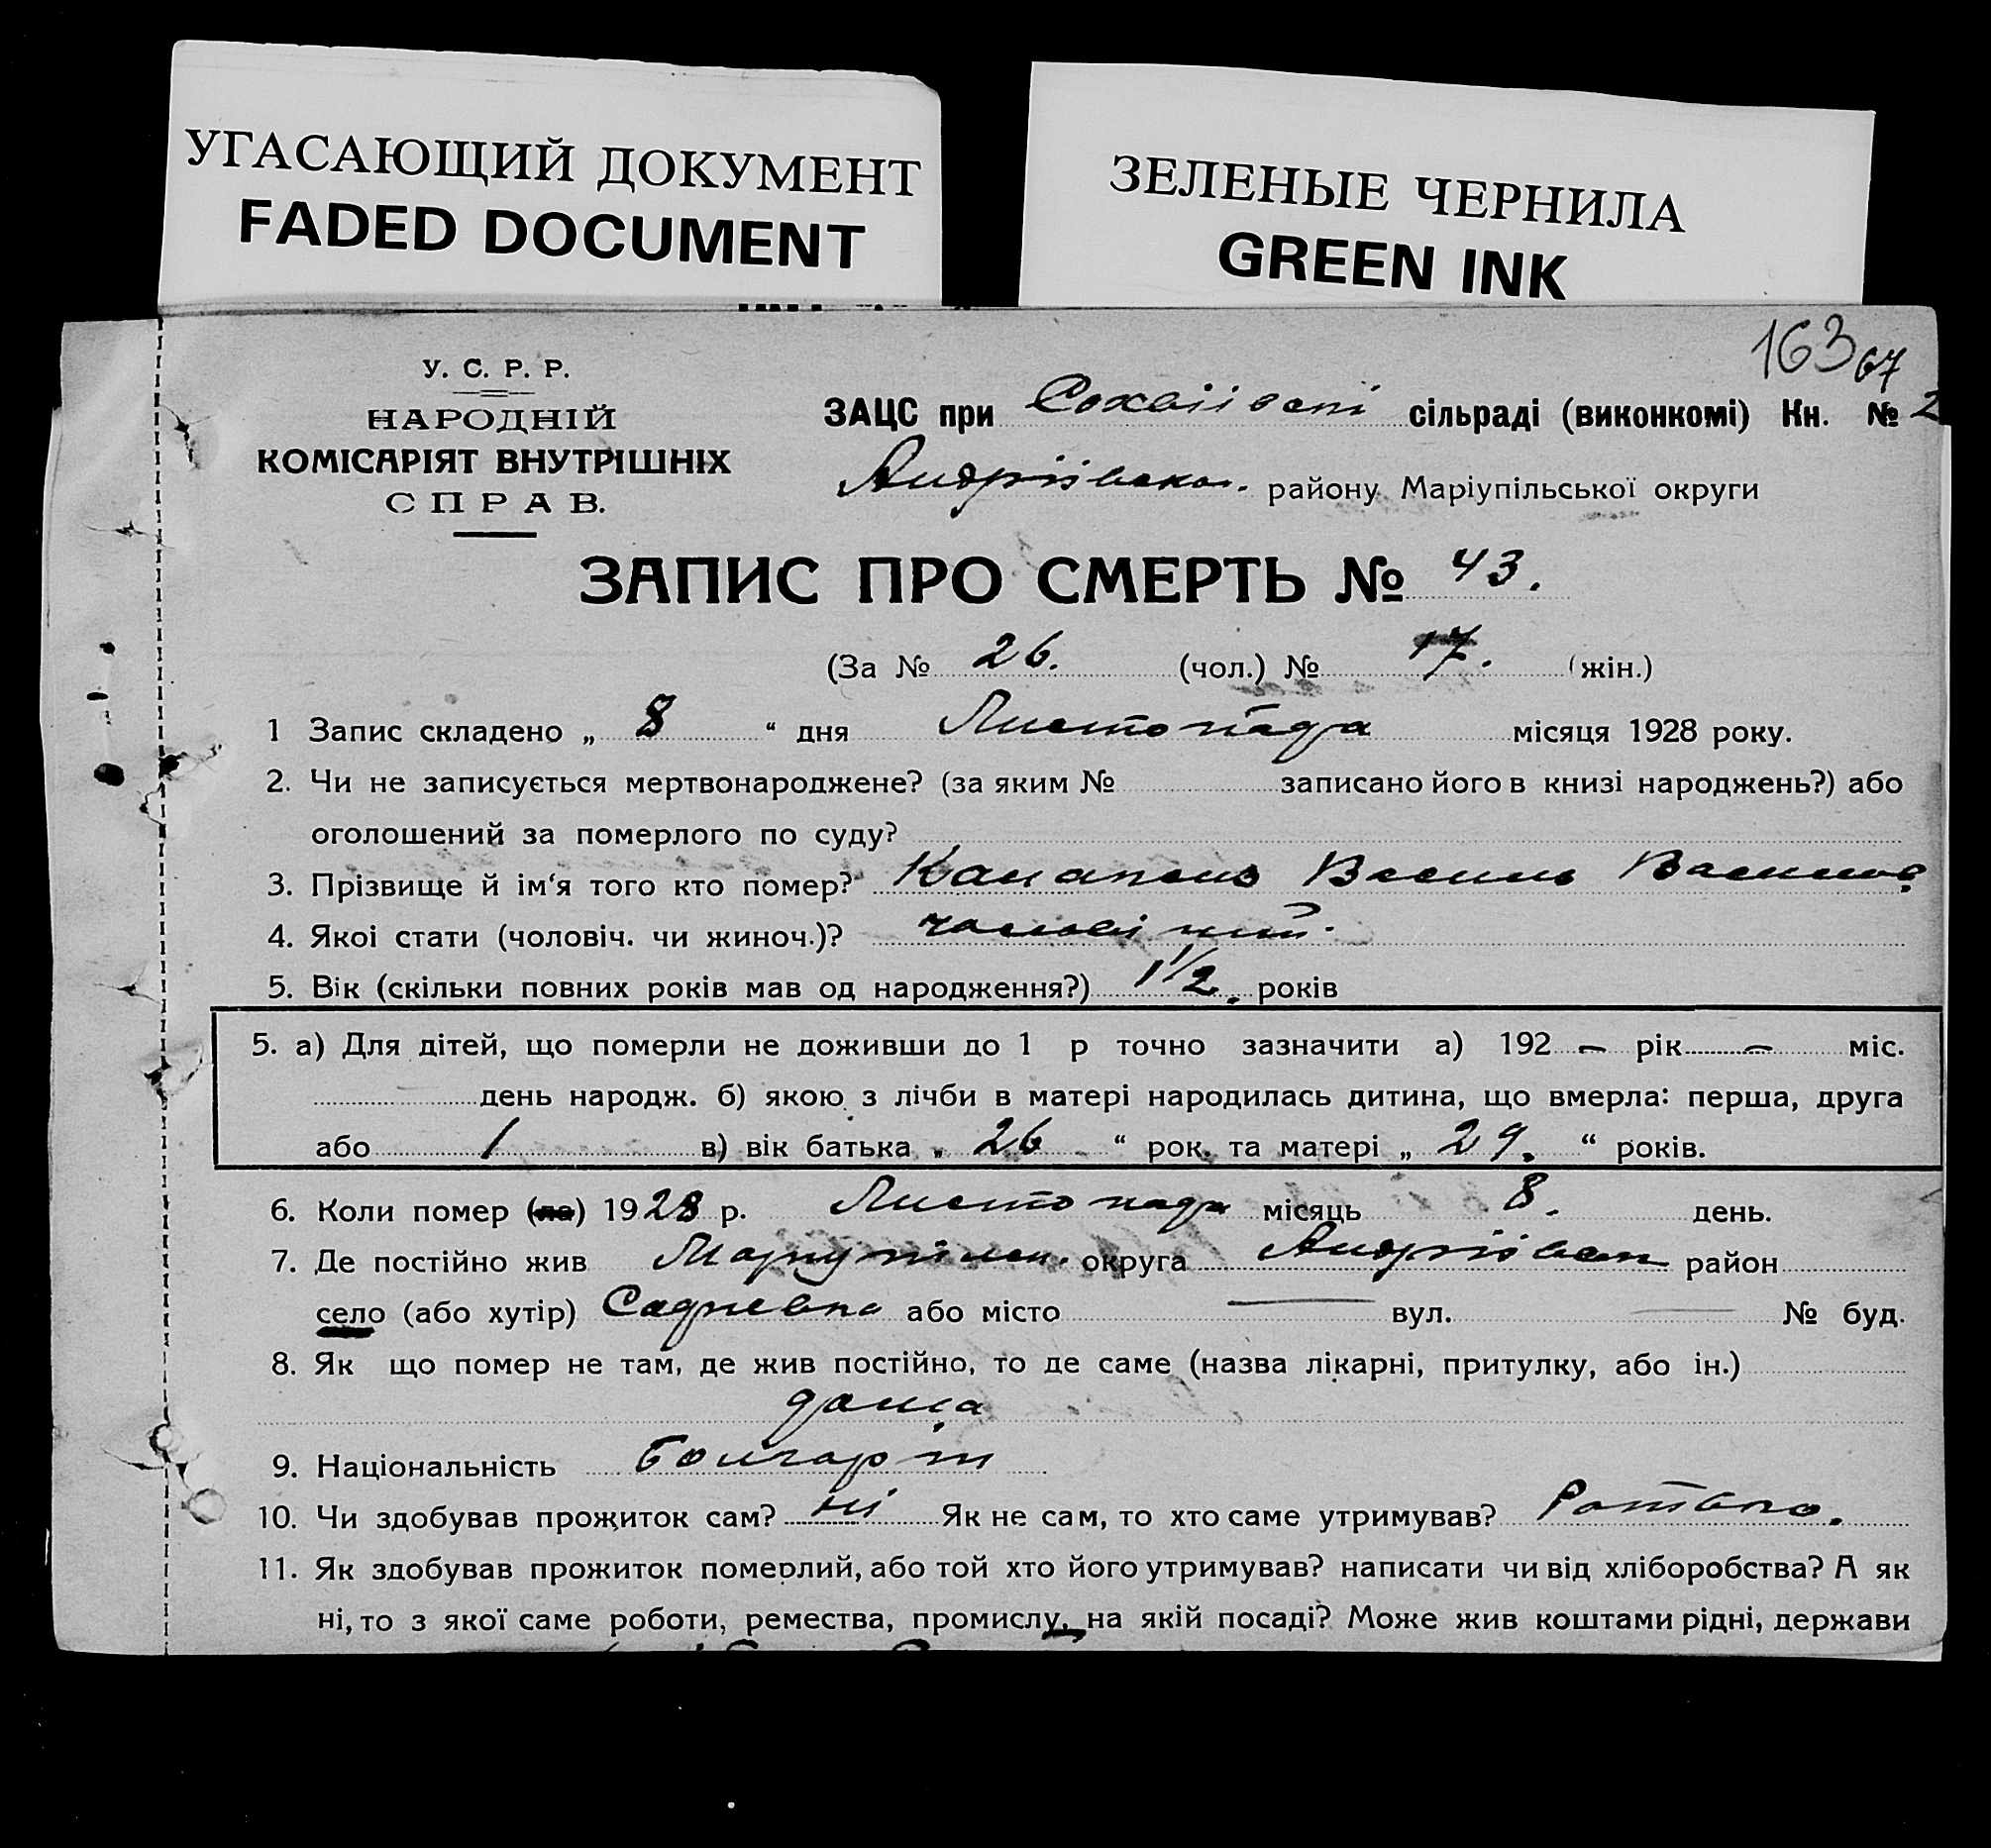 УГАСАЮЩИЙ ДОКУМЕНТ
FADED DOCUMENT
ЗЕЛЕНЫЕ ЧЕРНИЛА
GREEN INK
163 67
У. С. Р. Р.
НАРОДНІЙ
КОМІСАРІЯТ ВНУТРІШНІХ
СПРАВ.
ЗАЦС при сільраді (виконкомі) Кн. № 2
Андріївськ. району Маріупільської округи
ЗАПИС ПРО СМЕРТЬ № 43.
(За № 26. (чол.) № 17. (жін.)
1 Запис складено „ 8 “ дня Листопада місяця 1928 року.
2. Чи не записується мертвонароджене? (за яким № записано його в книзі народжень?) або
оголошений за померлого по суду?
3. Прізвище й ім‘я того кто помер? Василь
4. Якоі стати (чоловіч. чи жиноч.)?
5. Вік (скільки повних років мав од народження?) 1 1/2. років
5. а) Для дітей, що померли не доживши до 1 р точно зазначити а) 192 — рік — міс.
день народж. б) якою з лічби в матері народилась дитина, що вмерла: перша, друга
або 1 в) вік батька „ 26 “ рок. та матері „ 29. “ років.
6. Коли помер (ла) 1928 р. Листопада місяць 8. день.
7. Де постійно жив округа район
село (або хутір) або місто — вул. — № буд.
8. Як що помер не там, де жив постійно, то де саме (назва лікарні, притулку, або ін.)
дома
9. Національність
10. Чи здобував прожиток сам? ні Як не сам, то хто саме утримував?
11. Як здобував прожиток померлий, або той хто його утримував? написати чи від хліборобства? А як
ні, то з якої саме роботи, ремества, промислу, на якій посаді? Може жив коштами рідні, держави